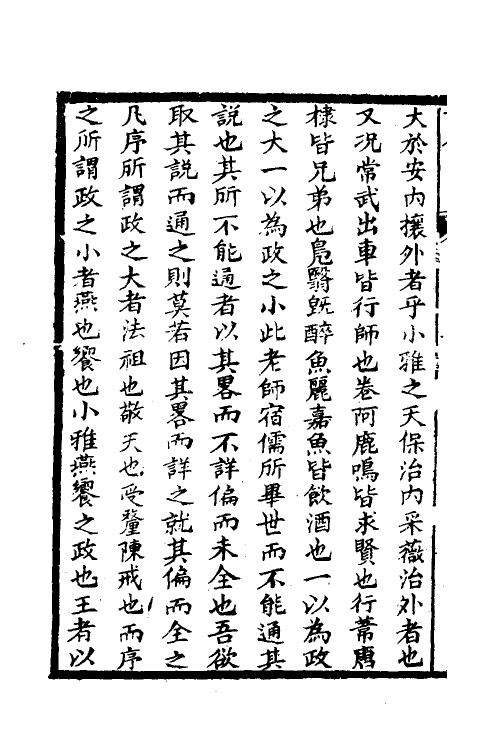 大於安內攘外者乎小雅之天保治內采薇治外者也
又况常武出車皆行師也卷阿鹿鳴皆求賢也行葦唐
棣皆兄弟也鳬鷖既醉魚麗嘉魚皆飲酒也一以為政
之大一以為政之小此老師宿儒所畢世而不能通其
說也其所不能通者以其畧而不詳偏而未全也吾欲
取其說而通之則莫若因其畧而詳之就其偏而全之
凡序所謂政之大者法祖也敬天也受釐陳戒也而序
之所謂政之小者燕也饗也小雅燕饗之政也王者以